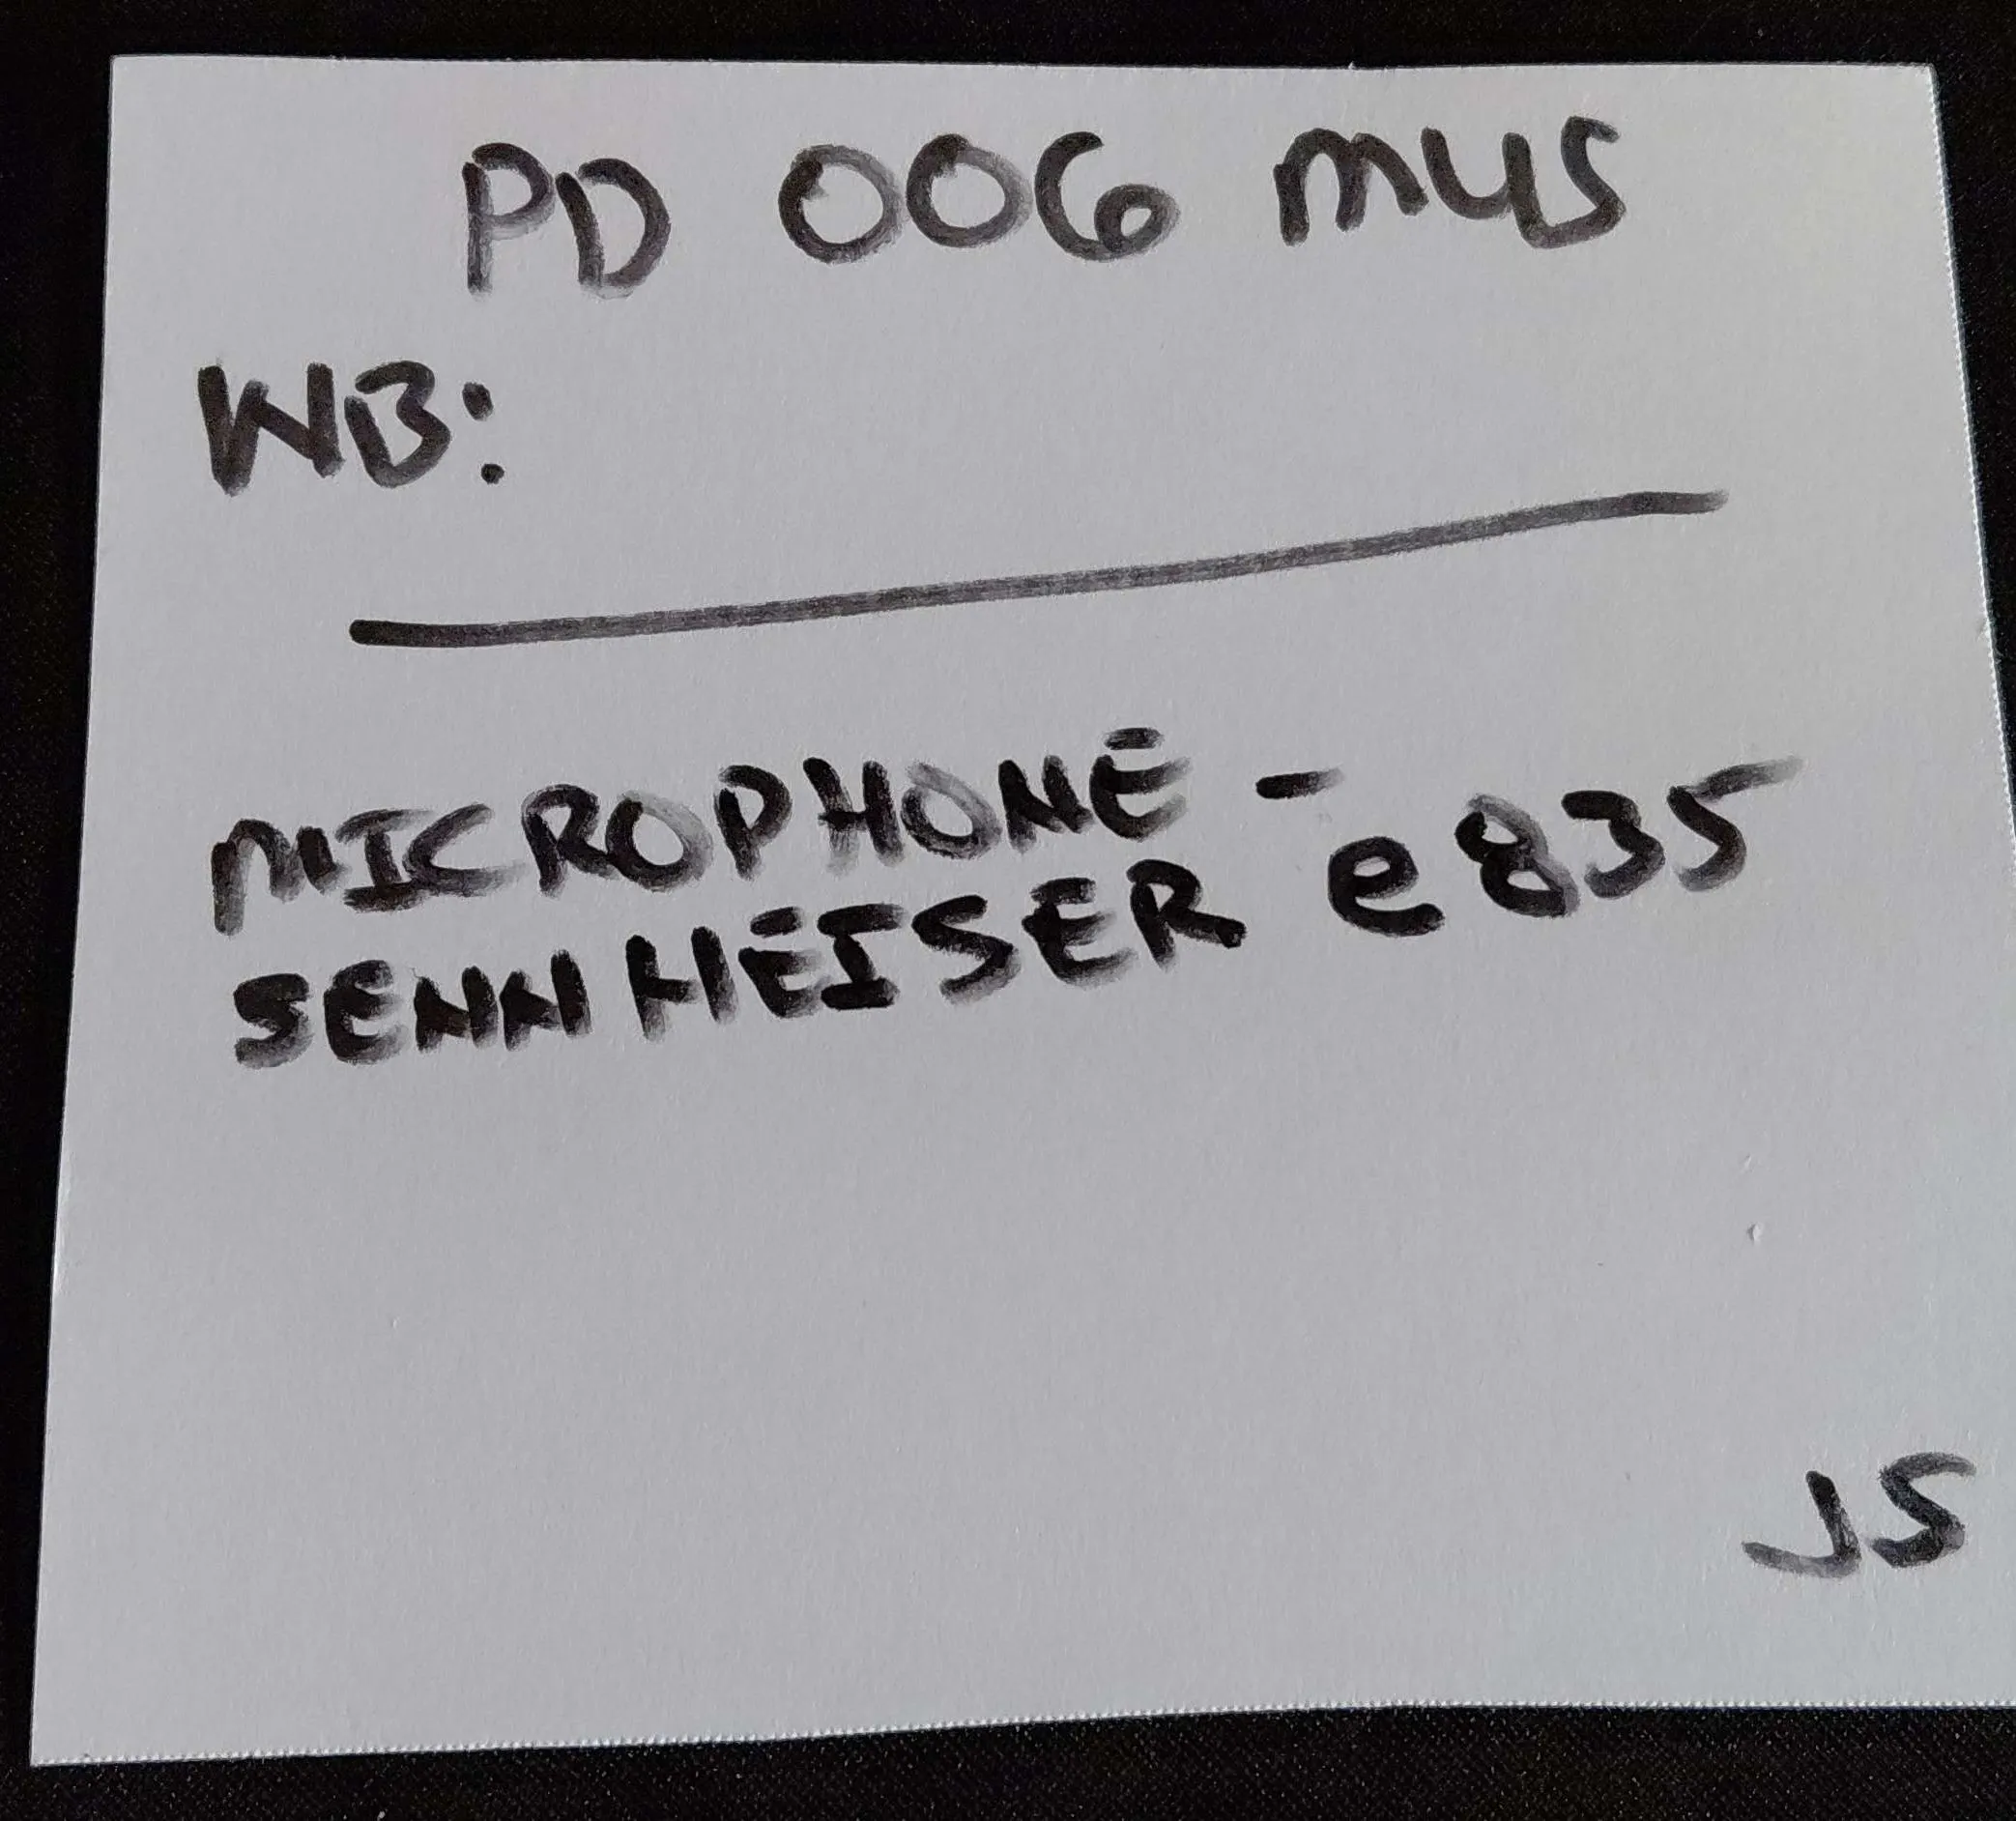 PD 006 mus
WB:
MICROPHONE -
SENNHEISER e835
JS